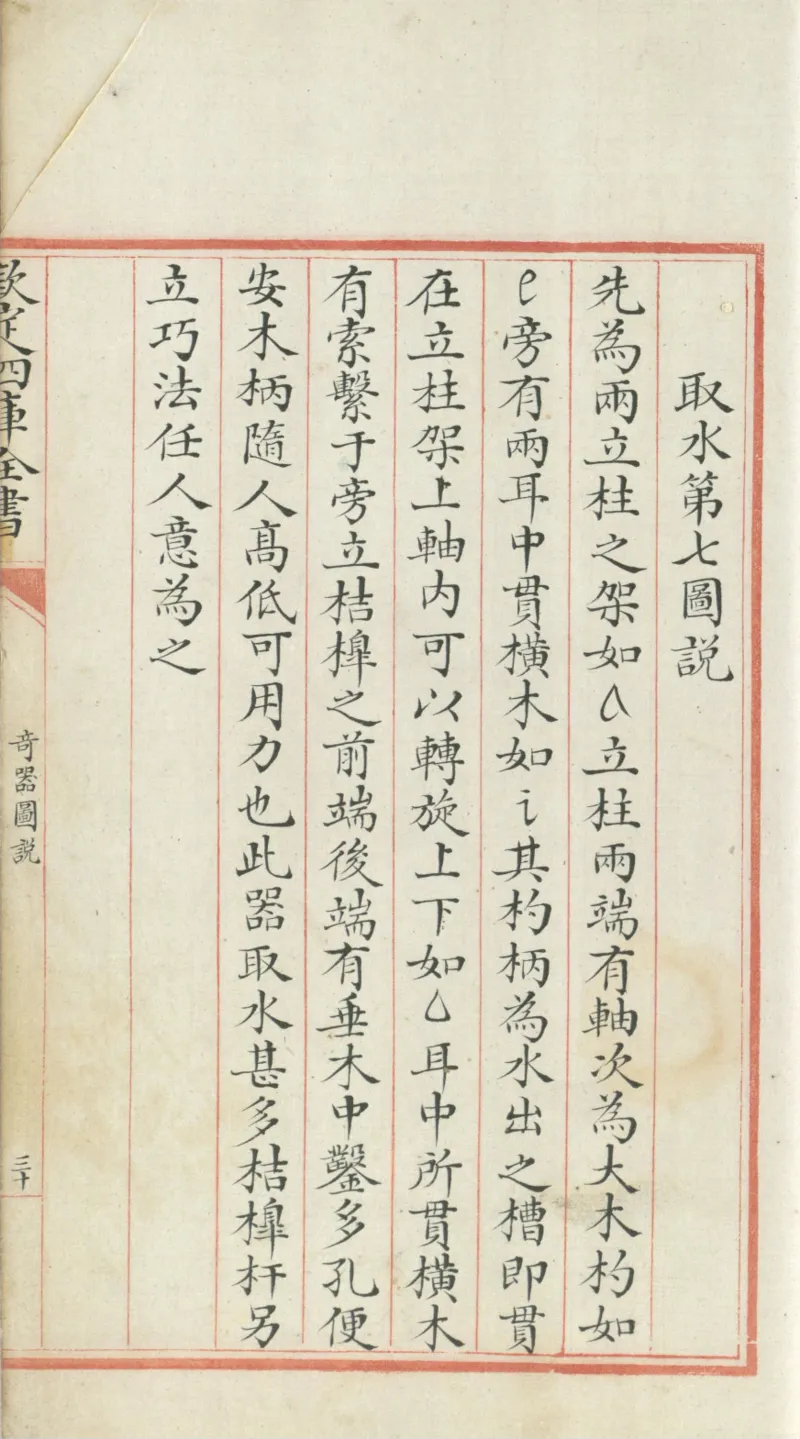 取水第七圖説
先為兩立柱之架如 立柱兩端有軸次為大木杓如
旁有兩耳中貫横木如 其杓柄為水出之槽即貫
在立柱架上軸内可以轉旋上下如 耳中所貫横木
有索繫于旁立桔槹之前端後端有垂木中鑿多孔便
安木柄隨人髙低可用力也此器取水甚多桔槹杆另
立巧法任人意為之
欽定四庫全書
奇器圖説
三十